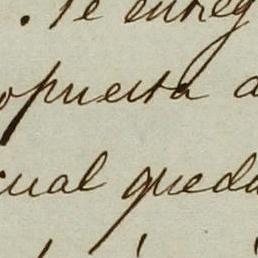 . Te entreg
opuesta a
cual queda